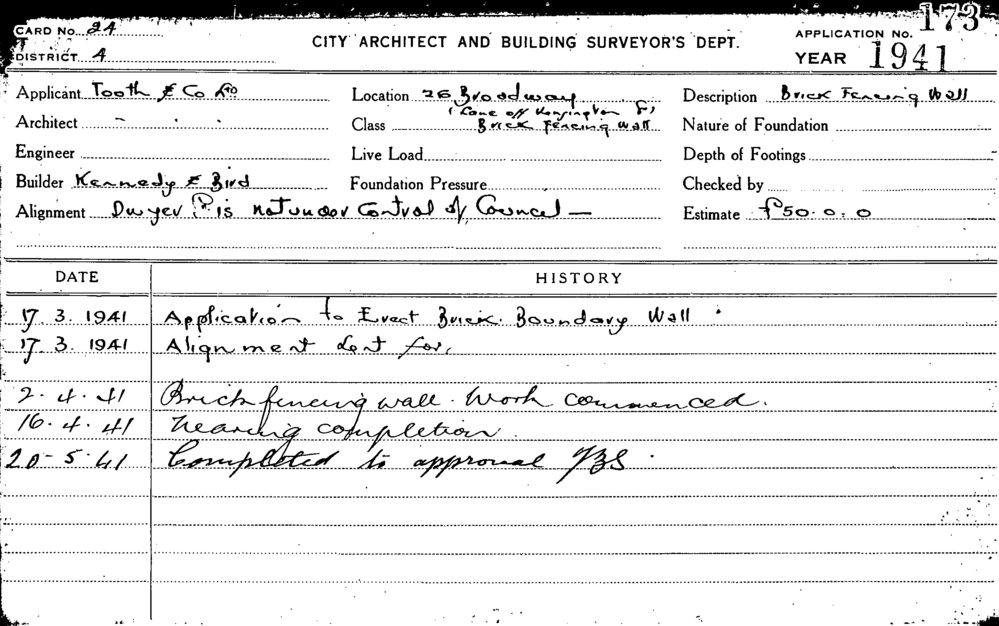 CARD No. 24
DISTRICT 4
CITY ARCHITECT AND BUILDING SURVEYOR'S DEPT.
APPLICATION No. 173
YEAR 1941
Applicant Tooth & Co Ltd
Location 26 Broadway
(Lane off Kensington St)
Description Brick Fencing Wall
Architect - . . .
Class Brick Fencing Wall
Nature of Foundation
Engineer
Live Load
Depth of Footings
Builder Kennedy & Bird
Foundation Pressure
Checked by
Alignment Dwyer St is not under Control of Council —
Estimate £50.0.0
DATE HISTORY
17 3. 1941 Application to Erect Brick Boundary Wall
17 3. 1941 Alignment Sent for,
2.4.41 Brick fencing wall. Work commenced.
16.4.41 Nearing completion
20-5.41 Completed to approval